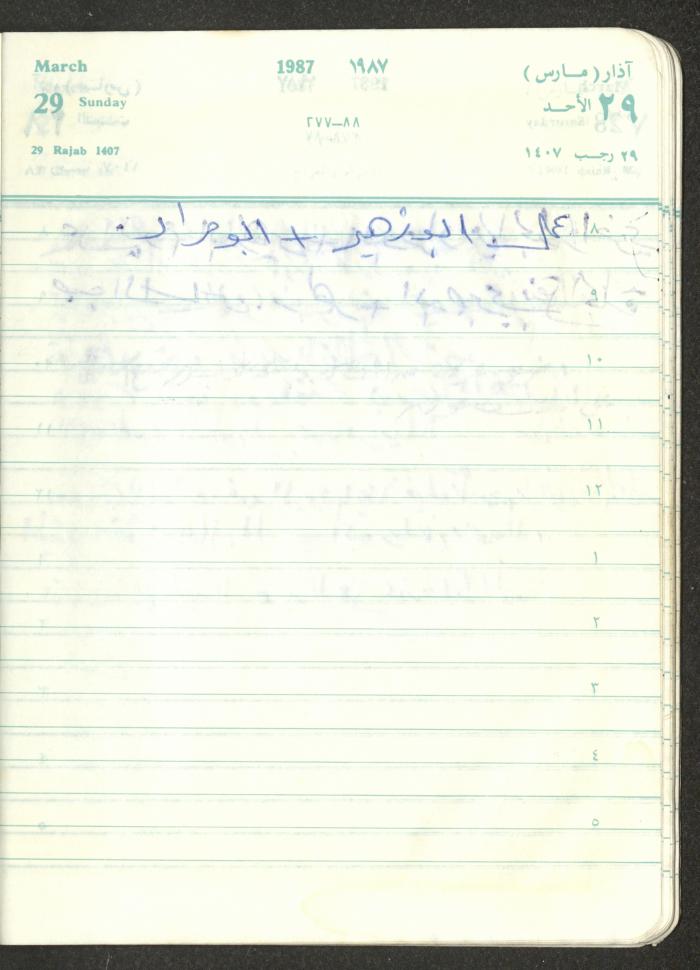 March 1987 ١٩٨٧ آذار ( مارس )
29 Sunday ٢٩ الأحد
٢٧٧–٨٨
29 Rajab 1407 ٢٩ رجب ١٤٠٧
٨ ابوزهير +
٩
١٠
١١
١٢
١
٢
٣
٤
٥